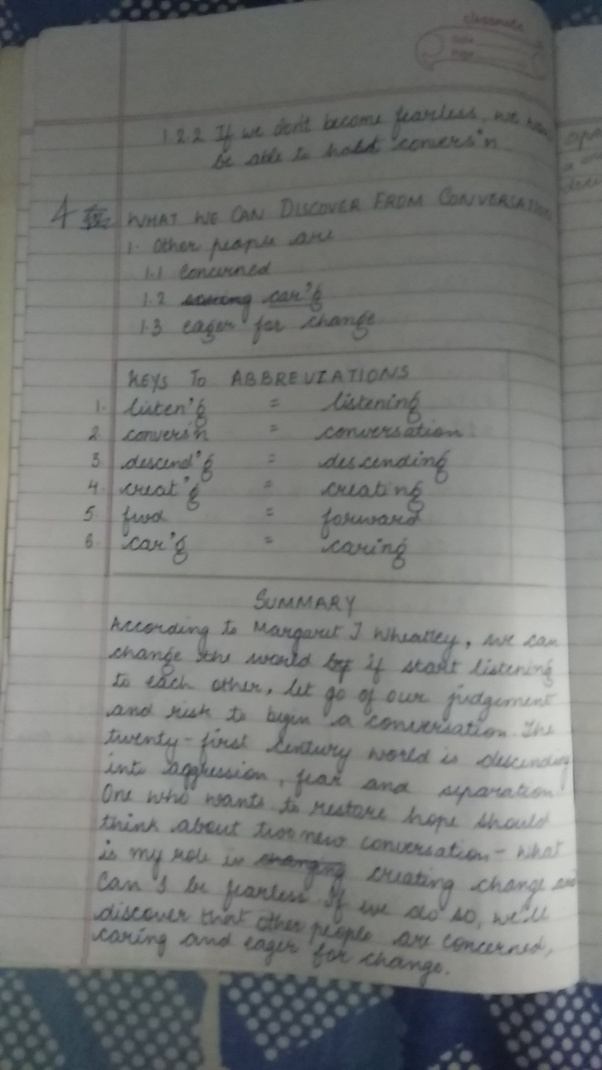 classmate
Date
Page
1.2.2 If we don't become fearless, we won
be able to hold convers'n
4 WHAT WE CAN DISCOVER FROM CONVERSATION
1. Other people are
1.1 concerned
1.2 car'g
1.3 eager for change
KEYS TO ABBREVIATIONS
1. listen'g = listening
2. convers'n = conversation
3. descend'g = descending
4. creat'g = creating
5. fwd = forward
6. car'g = caring
SUMMARY
According to Margaret J Wheatley, we can
change the world if start listening
to each other, let go of our judgement
and risk to begin a conversation. The
twenty-first century world is descending
into aggression, fear and separation
One who wants to restore hope should
think about two new conversation - What
is my role in changing creating change and
Can I be fearless. If we do so, we'll
discover that other people are concerned,
caring and eager for change.